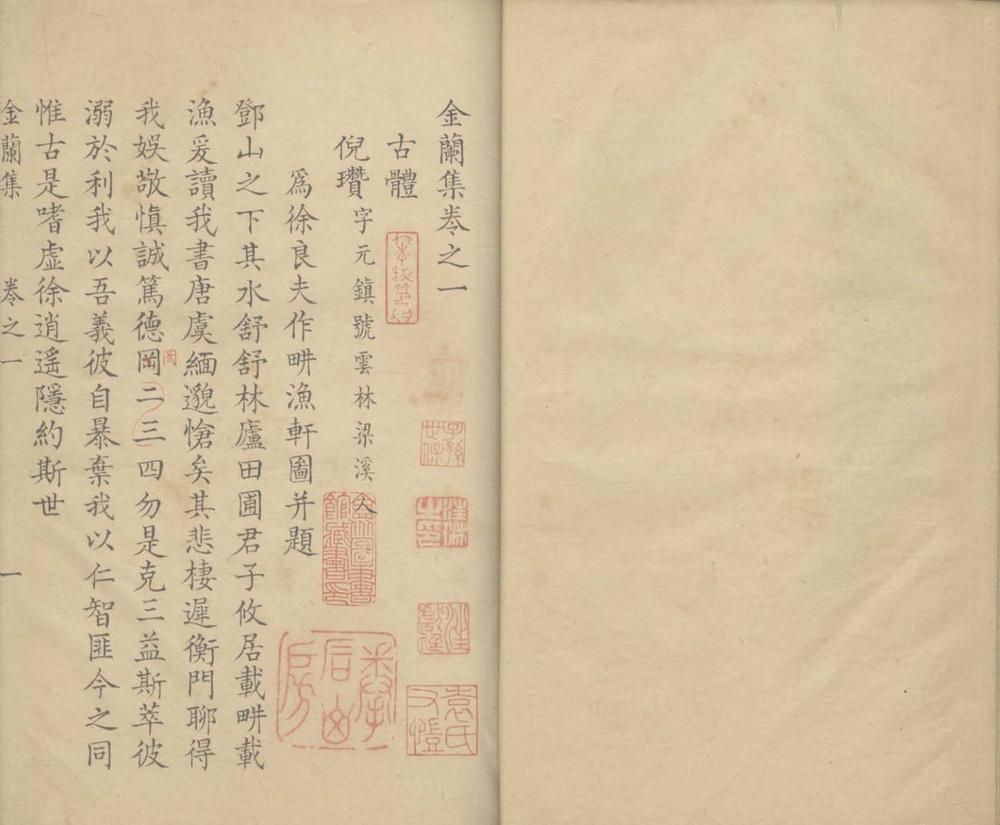 金蘭集卷之一
古體
倪瓚字元鎮號雲林梁溪人
為徐良夫作畊漁軒圖并題
鄧山之下其水舒舒林廬田圃君子攸居載畊載
漁爰讀我書唐虞緬邈愴矣其悲棲遲衡門聊得
我娛敬慎誠篤德岡二三四勿是克三益斯萃彼
罔
溺於利我以吾義彼自暴棄我以仁智匪今之同
惟古是嗜虛徐逍遙隱約斯世
金蘭集 卷之一 一
袁氏又愷